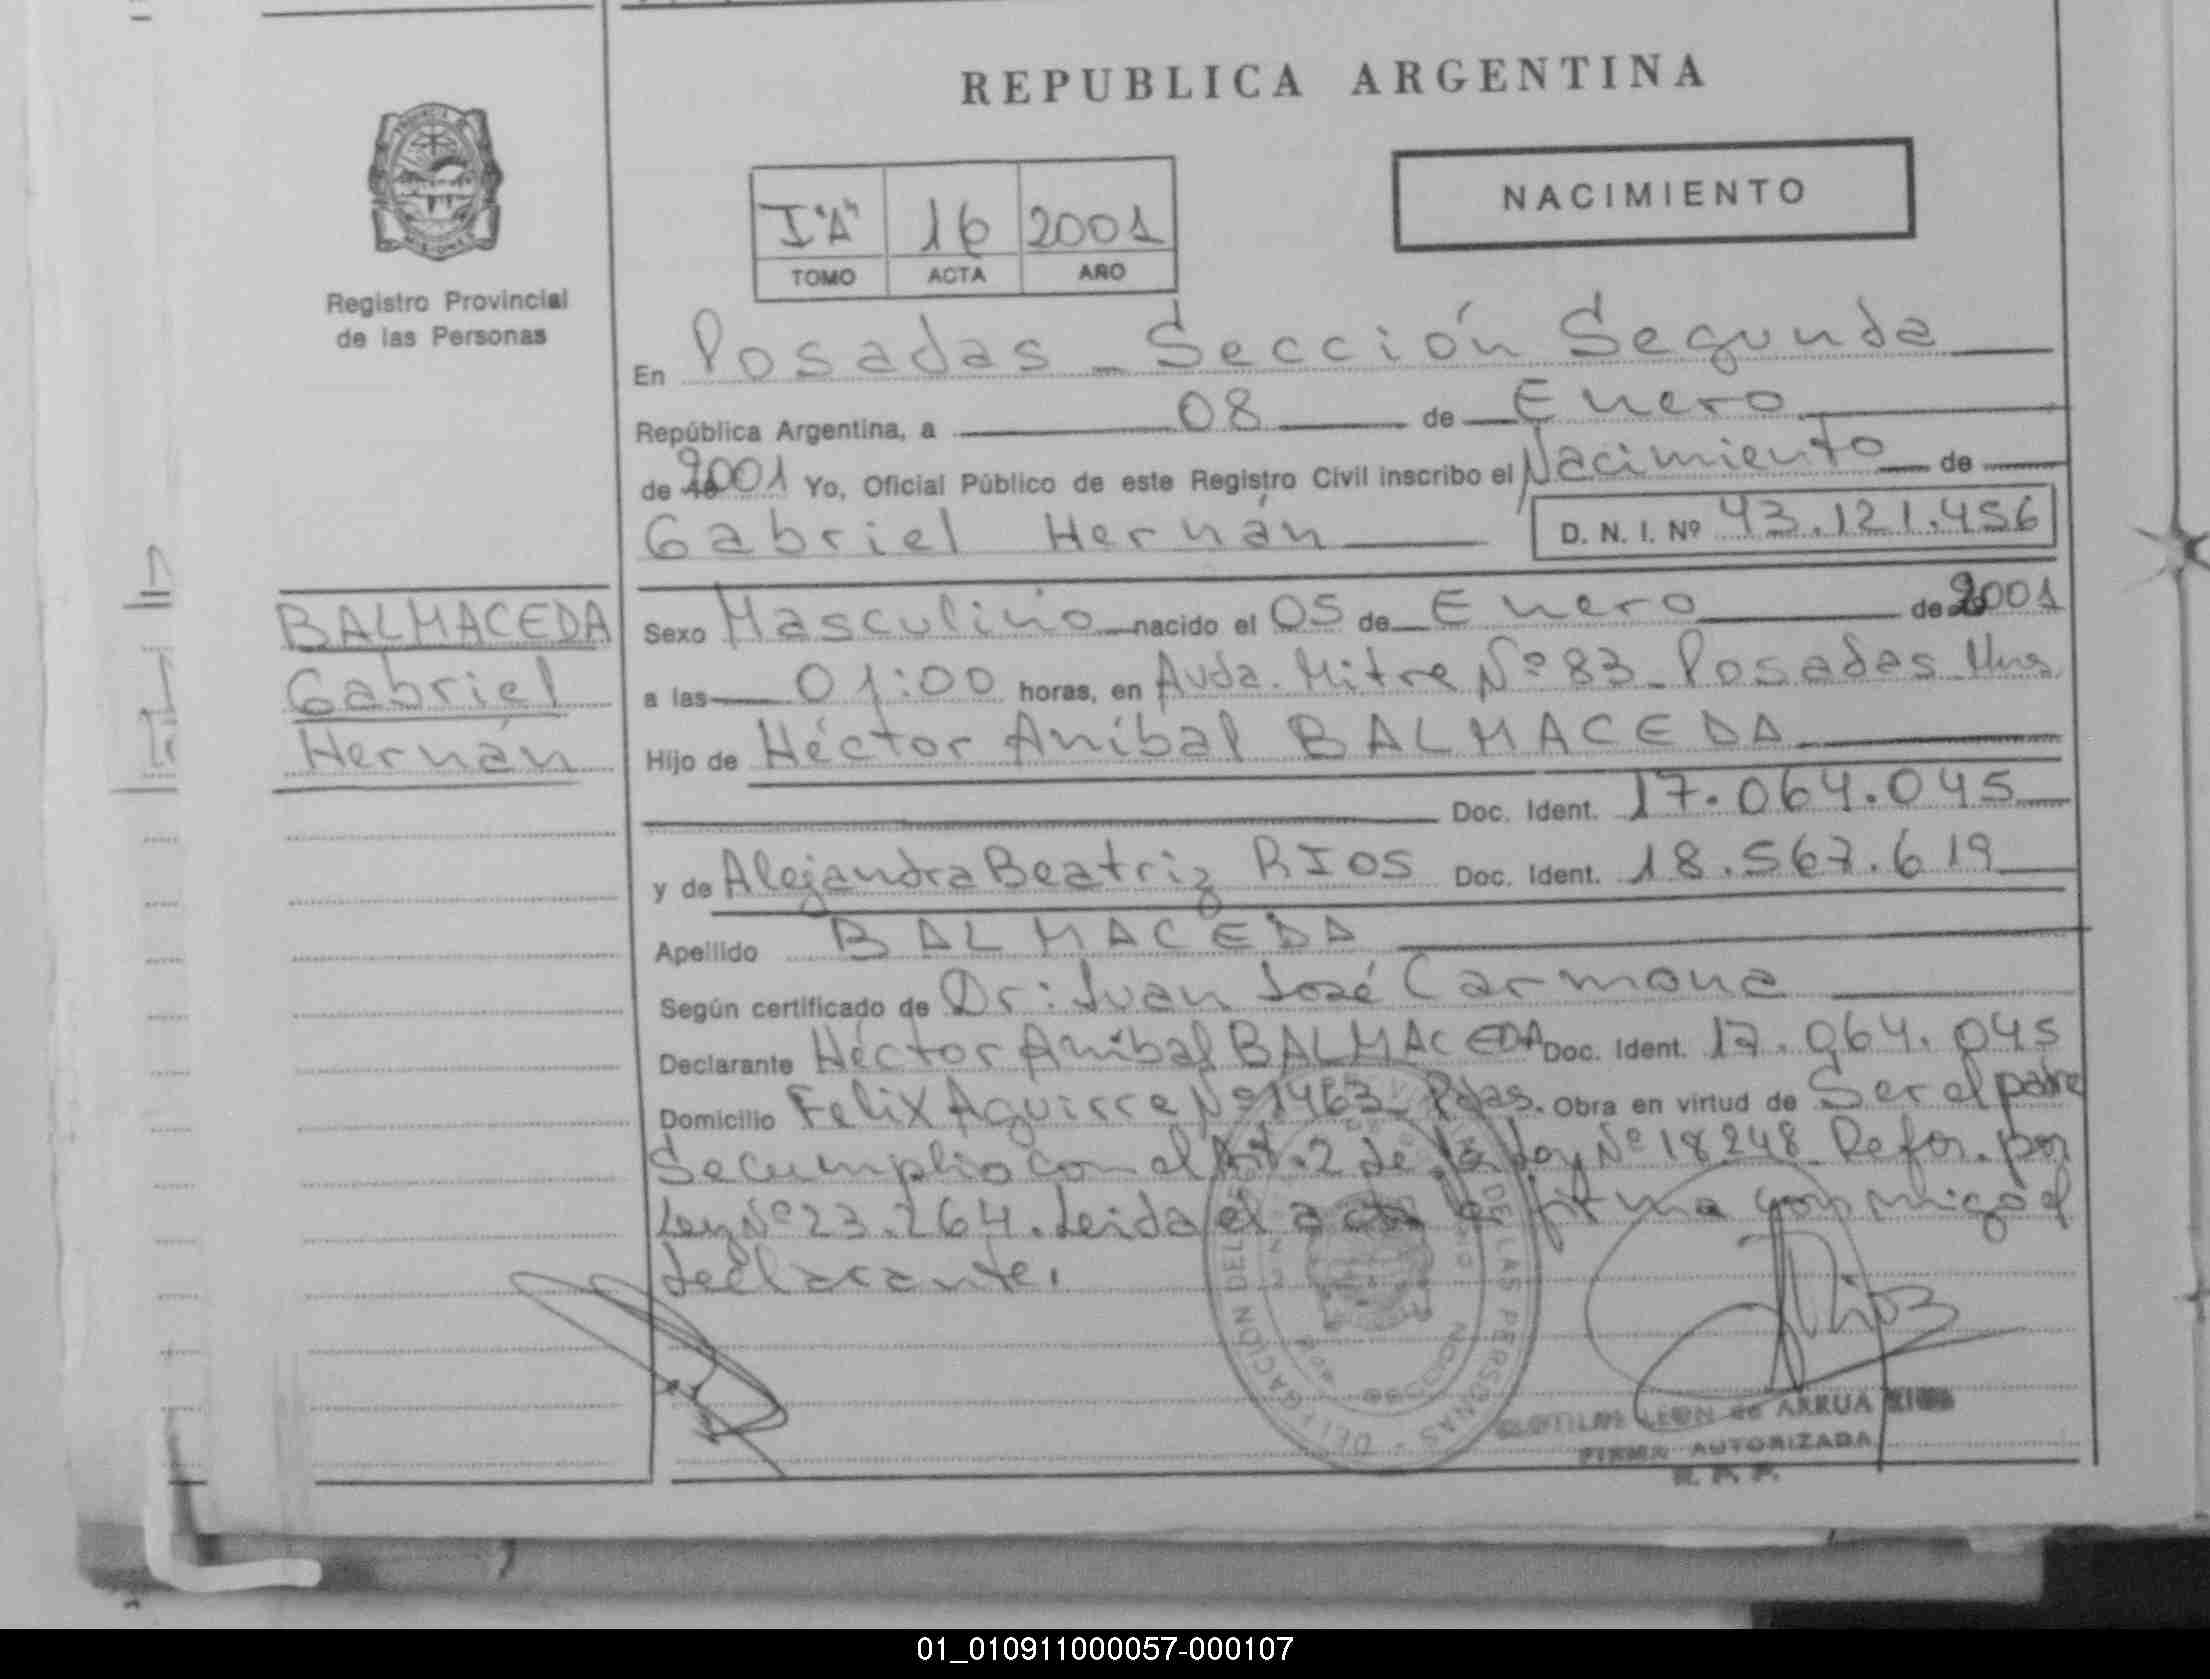 REPUBLICA ARGENTINA
NACIMIENTO
I "A" 16 2001
TOMO ACTA AÑO
Registro Provincial
de las Personas
En Posadas - Sección Segunda
República Argentina, a 08 de Enero
de 2001 Yo, Oficial Público de este Registro Civil inscribo el Nacimiento de
Gabriel Hernán D. N. I. Nº 43.121.456
BALMACEDA
Gabriel
Hernán
Sexo Masculino nacido el 05 de Enero de 2001
a las 01:00 horas, en Avda. Mitre Nº 83 - Posadas - Mnes
Hijo de Héctor Aníbal BALMACEDA
Doc. Ident. 17.064.045
y de Alejandra Beatriz RIOS Doc. Ident. 18.567.619
Apellido BALMACEDA
Según certificado de Dr: Juan José Carmona
Declarante Héctor Aníbal BALMACEDA Doc. Ident. 17.064.045
Domicilio Felix Aguirre Nº 1463 - Pdas. Obra en virtud de Ser el padre
Se cumplio con el Art. 2 de la Ley Nº 18248 Refor. por
Ley Nº 23.264. Leida el acta la firma conmigo el
declarante.
DELEGACIÓN DEL DE LAS PERSONAS
LEON de ARRUA
FIRMA AUTORIZADA
R. P. P.
01_010911000057-000107